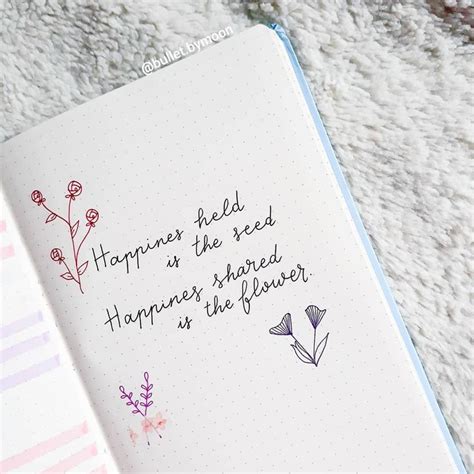 @bullet.bymoon
Happines held
is the seed
Happines shared
is the flower.